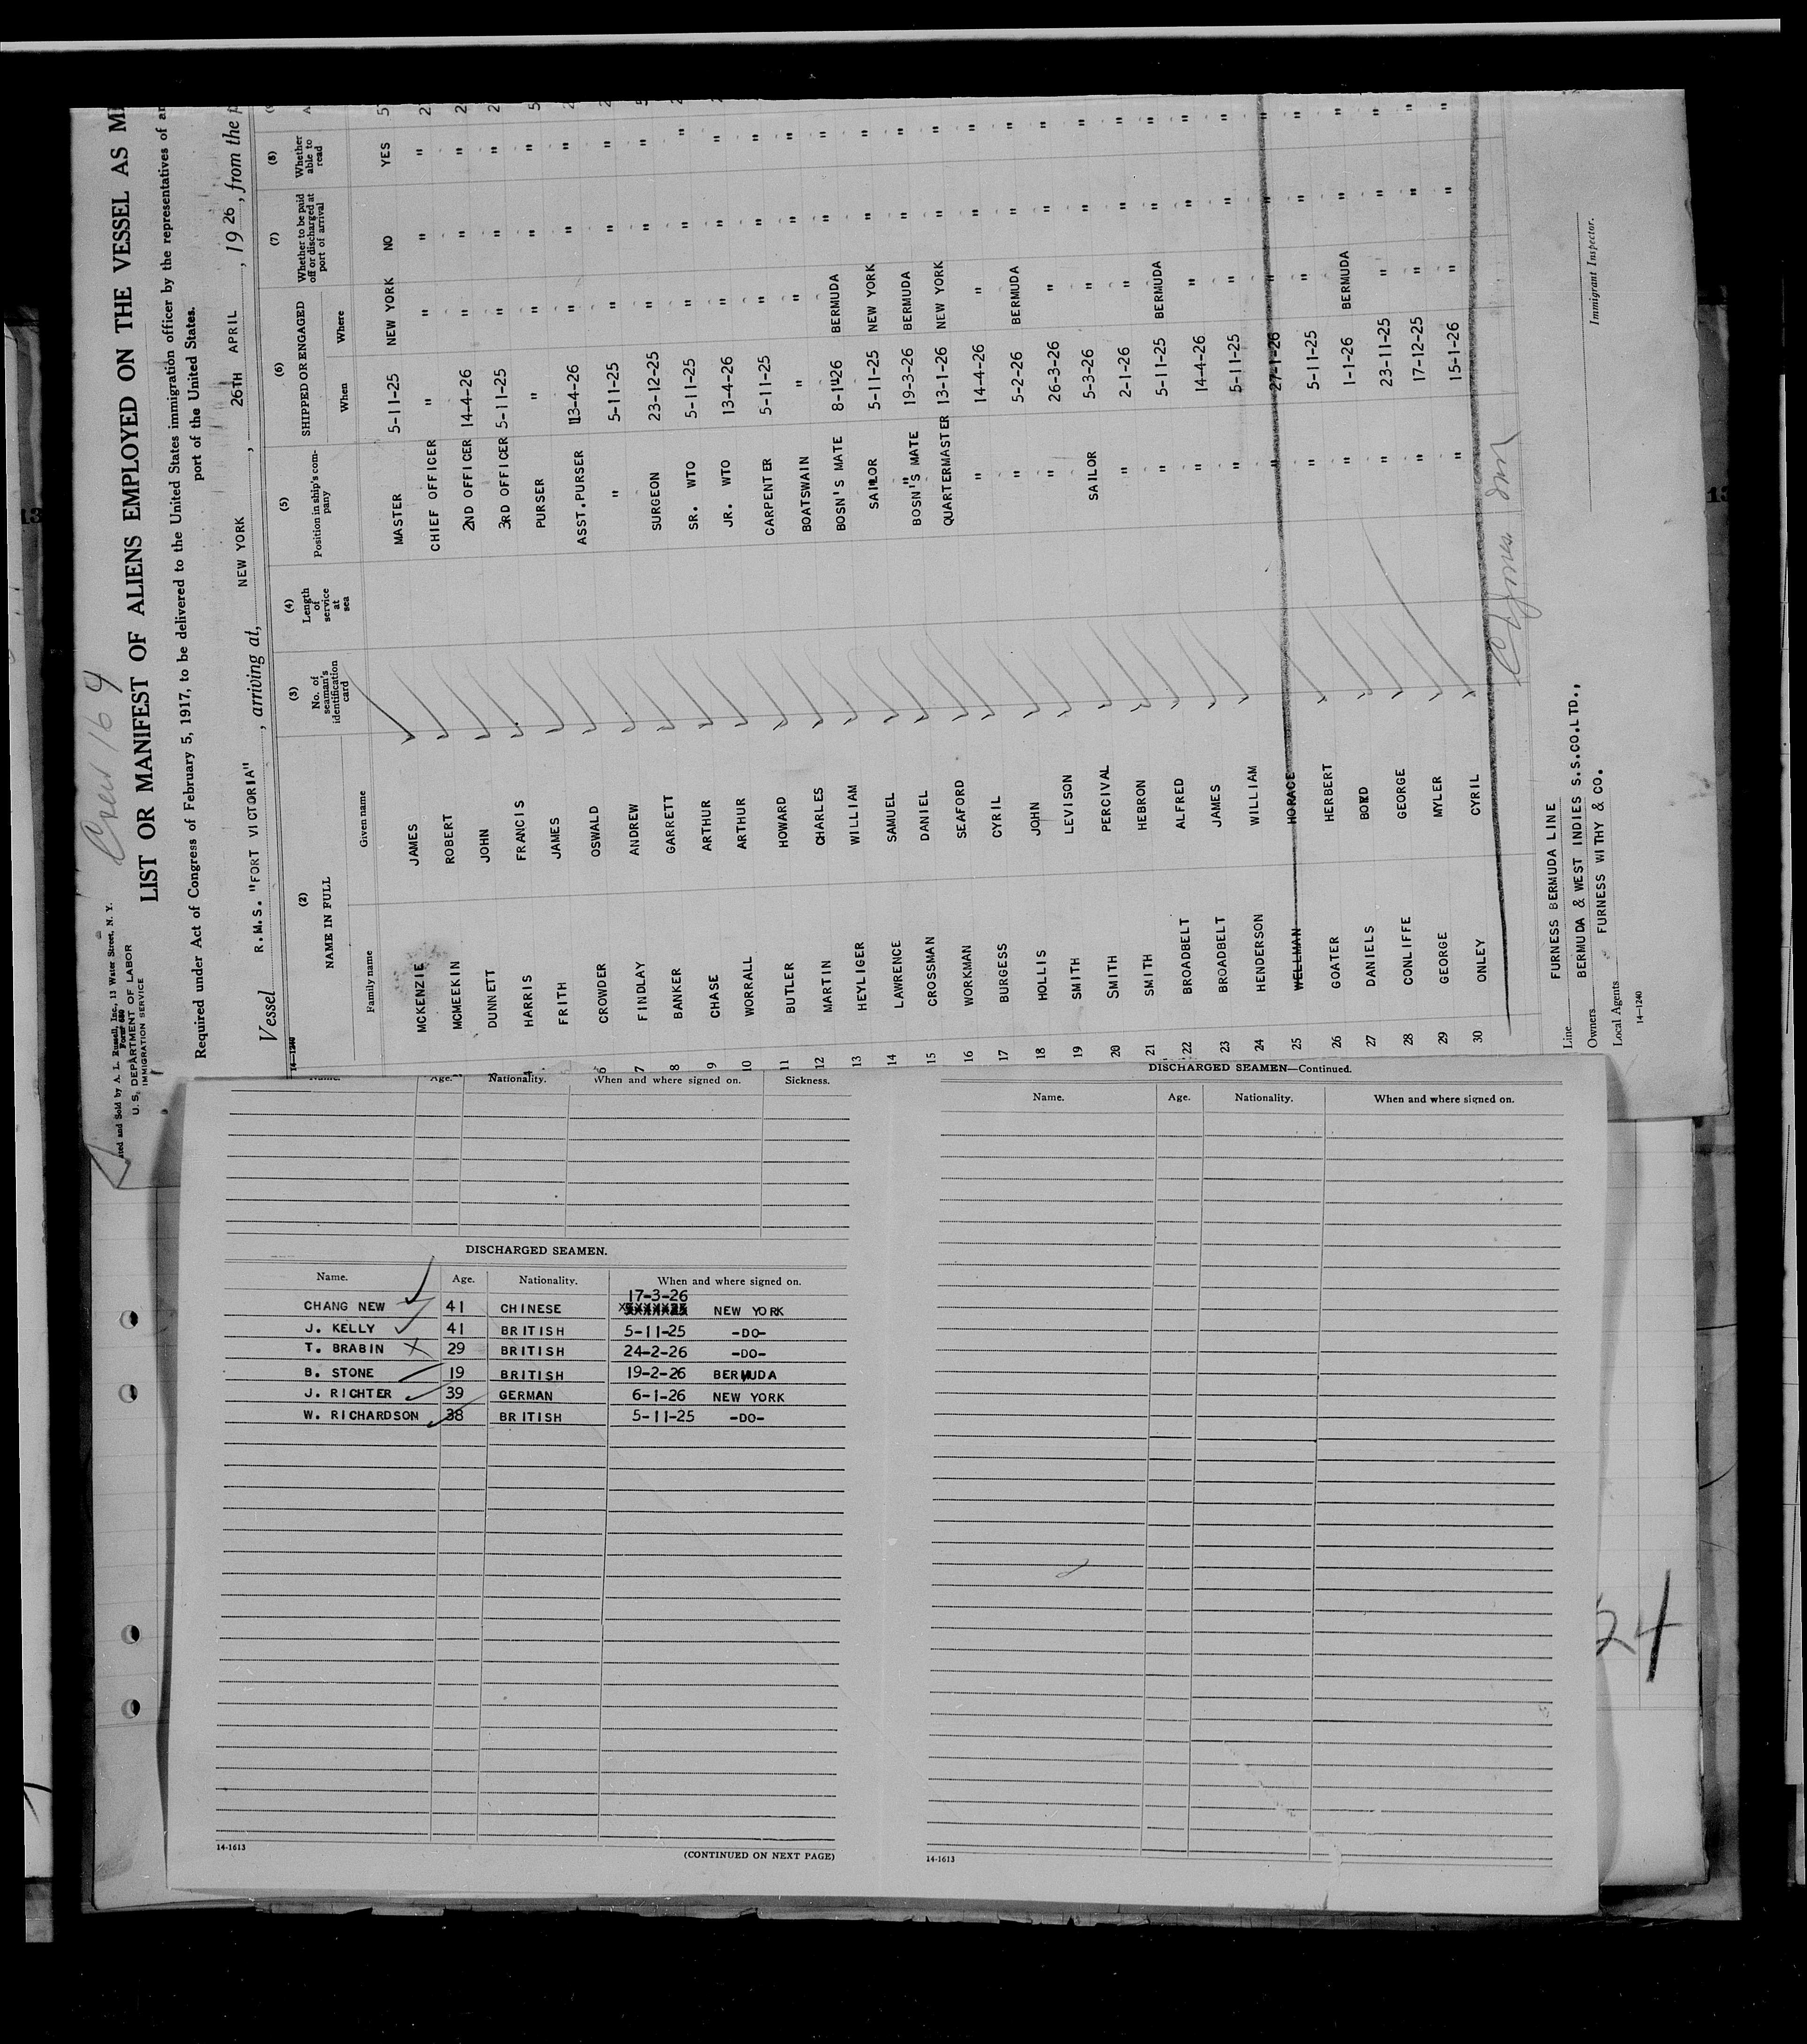 Crew 164
ted and Sold by A. L. Russell, Inc., 13 Water Street, N. Y.
Form 680
U. S. DEPARTMENT OF LABOR
IMMIGRATION SERVICE
LIST OR MANIFEST OF ALIENS EMPLOYED ON THE VESSEL AS
Required under Act of Congress of February 5, 1917, to be delivered to the United States immigration officer by the representatives of
port of the United States.
Vessel R.M.S. "FORT VICTORIA", arriving at, NEW YORK, 26TH APRIL, 1926, from the
14-1240
(2) (3) (4) (5) (6) (7) (8)
NAME IN FULL No. of seaman's identification card Length of service at sea Position in ship's company SHIPPED OR ENGAGED Whether to be paid off or discharged at port of arrival Whether able to read
Family name Given name When Where
MCKENZIE JAMES MASTER 5-11-25 NEW YORK NO YES
MCMEEKIN ROBERT CHIEF OFFICER " " " "
3 DUNNETT JOHN 2ND OFFICER 14-4-26 " " "
4 HARRIS FRANCIS 3RD OFFICER 5-11-25 " " "
FRITH JAMES PURSER " " " "
6 CROWDER OSWALD ASST.PURSER 13-4-26 " " "
7 FINDLAY ANDREW " 5-11-25 " " "
8 BANKER GARRETT SURGEON 23-12-25 " " "
9 CHASE ARTHUR SR. WTO 5-11-25 " " "
10 WORRALL ARTHUR JR. WTO 13-4-26 " " "
11 BUTLER HOWARD CARPENTER 5-11-25 " " "
12 MARTIN CHARLES BOATSWAIN " " " "
13 HEYLIGER WILLIAM BOSN'S MATE 8-1-26 BERMUDA " "
14 LAWRENCE SAMUEL SAILOR 5-11-25 NEW YORK " "
15 CROSSMAN DANIEL BOSN'S MATE 19-3-26 BERMUDA " "
16 WORKMAN SEAFORD QUARTERMASTER 13-1-26 NEW YORK " "
17 BURGESS CYRIL " 14-4-26 " " "
18 HOLLIS JOHN " 5-2-26 BERMUDA " "
19 SMITH LEVISON " 26-3-26 " " "
20 SMITH PERCIVAL SAILOR 5-3-26 " " "
21 SMITH HEBRON " 2-1-26 " " "
22 BROADBELT ALFRED " 5-11-25 BERMUDA " "
23 BROADBELT JAMES " 14-4-26 " " "
24 HENDERSON WILLIAM " 5-11-25 " " "
25 WELLMAN HORACE " 27-1-26 " " "
26 GOATER HERBERT " 5-11-25 " " "
27 DANIELS BOYD " 1-1-26 BERMUDA " "
28 CONLIFFE GEORGE " 23-11-25 " " "
29 GEORGE MYLER " 17-12-25 " " "
30 ONLEY CYRIL " 15-1-26 " " "
Line FURNESS BERMUDA LINE
Owners BERMUDA & WEST INDIES S.S.CO.LTD.,
Local Agents FURNESS WITHY & CO.
Immigrant Inspector.
14-1240
Age. Nationality. When and where signed on. Sickness.
DISCHARGED SEAMEN.
Name. Age. Nationality. When and where signed on.
17-3-26
CHANG NEW 41 CHINESE NEW YORK
J. KELLY 41 BRITISH 5-11-25 -DO-
T. BRABIN 29 BRITISH 24-2-26 -DO-
B. STONE 19 BRITISH 19-2-26 BERMUDA
J. RICHTER 39 GERMAN 6-1-26 NEW YORK
W. RICHARDSON 38 BRITISH 5-11-25 -DO-
14-1613
(CONTINUED ON NEXT PAGE)
DISCHARGED SEAMEN—Continued.
Name. Age. Nationality. When and where signed on.
14-1613
24